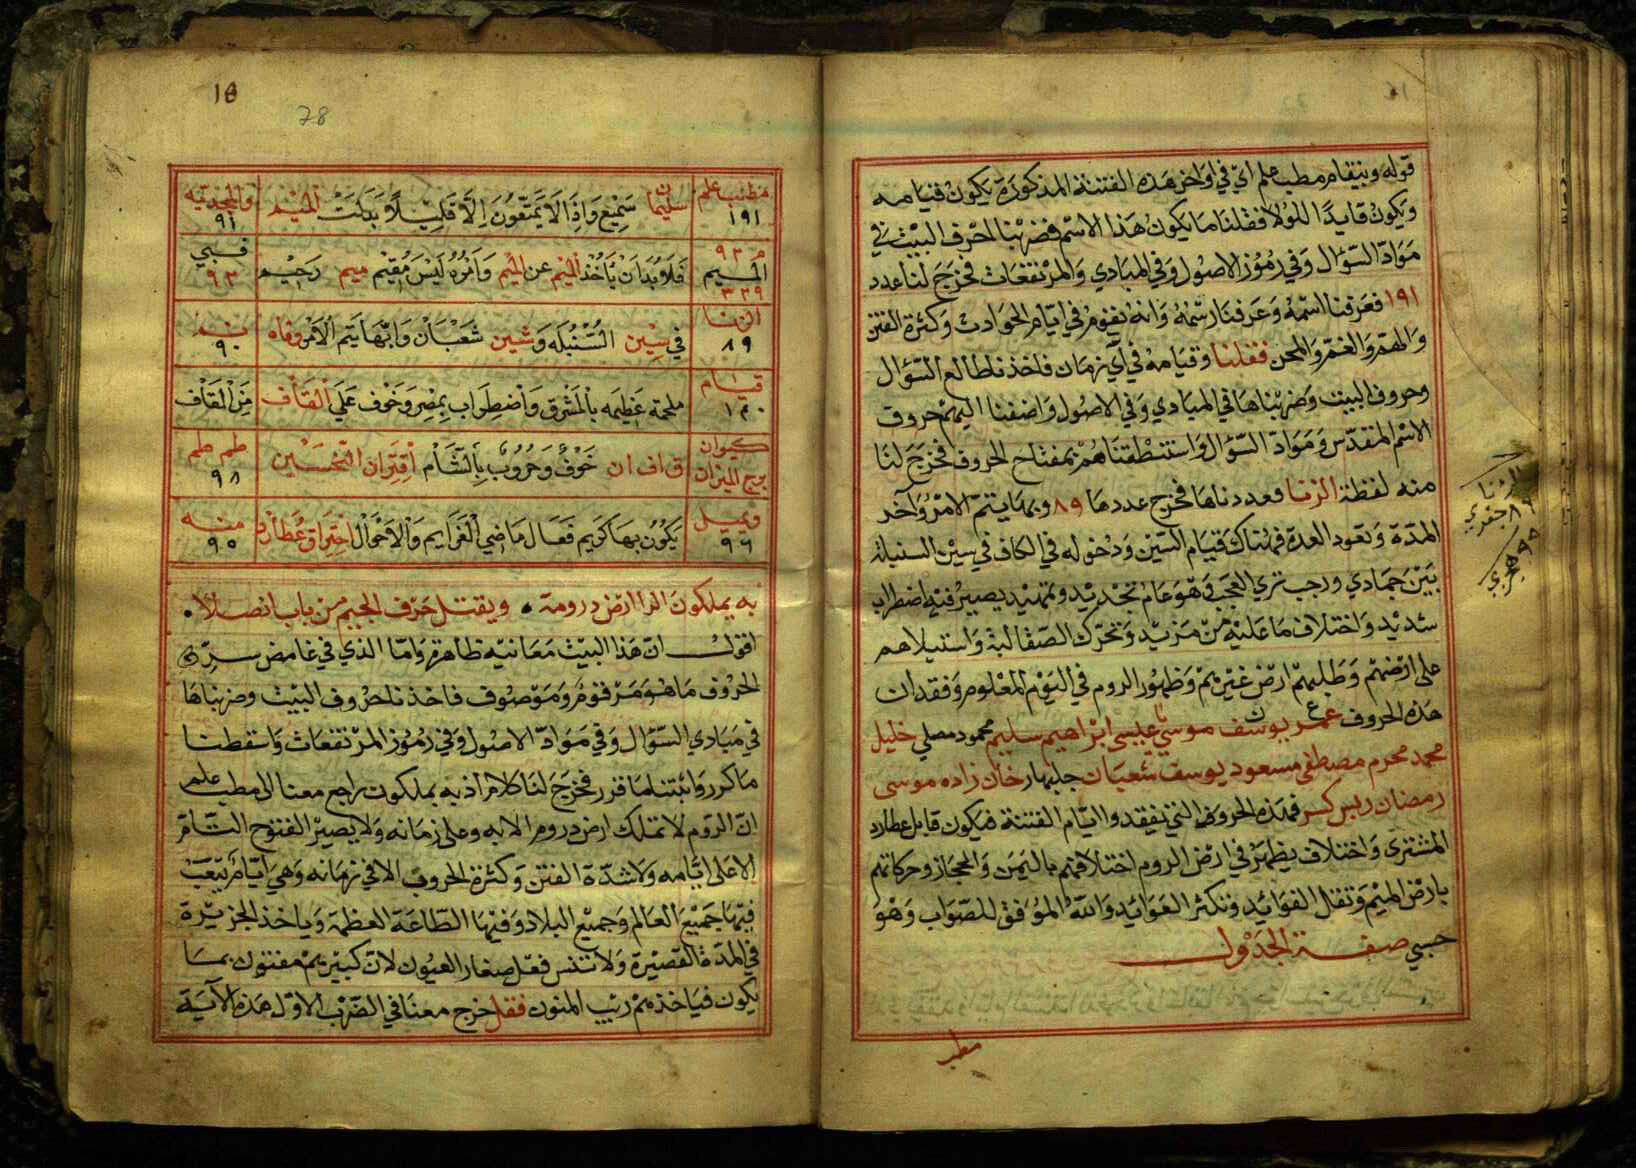 قوله وبيقام مطب علم اي في اواخر هذه الفتنة المذكورة يكون قيامه
ويكون قايدا اللولا فقلنا ما يكون هذا الاسم فضربنا احرف البيت في
موادّ السّؤال وفي رموز الاصول وفي المبادي والمرتفعات فخرج لنا عدد
١٩١ فعرفنا اسمه وعرفنا رسمه وانه يقوم في ايام الحوادث وكثرة الفتن
والهم والغم والمحن فقلنا وقيامه في اي زمان فاخذنا طالع السّؤال
وحروف البيت وضربناها في المبادي وفي الاصول واضفنا اليهم حروف
الاسم المقدّس وموادّ السّؤال واستنطقناهم بمفتاح الحروف فخرج لنا
منه لفظة الزنا فعددناها فخرج عددها ٨٩ وبها يتم الامر واخر
المدّة وتعود العدة فهناك قيام السين ودخوله في الكاف في سين السنبلة
بين جمادي ورجب تري العجب فهو عام تحديد وتمهيد يصير فيه اضطراب
شديد واختلاف ما عليه من مزيد وتحرك الصقالبة واستيلاهم
على ارضهم وطلبهم ارض غيرهم وظهور الروم في اليوم المعلوم وفقدان
هذه الحروف عمر يوسف موسي عيسى ابراهيم سليم محمود مصلي خليل
محمد محرم مصطفى مسعود يوسف شعبان جلبهار خان زاده موسى
رمضان ريس كسر فهذه الحروف التي تفقدوا ايام الفتنة فيكون قابل عطارد
المشترى واختلاف يظهر في ارض الروم اختلافهم باليمن والحجاز وحركاتهم
بارض الميم وتقال الفوائد وتكثر العوائد والله الموفق للصواب وهو
حسبي صفة الجدول
مطب
الزنا
٨٩ جفري
هجري
18
78
مطب علم ١٩١ سليمان سميع واذا لا يمتعون الا قليلا بدلت الميم والمجدية ٩١
الميم ٣٢٩ فلا بد ان ياخذ الميم عن الميم وامره ليس مقيم ميم رحيم قبي ٩٢
الزنا ٨٩ في سين السنبله وشين شعبان وانها يتم الامر وفاه ٩٠
قيام ملحمه عظيمه بالمشرق واضطراب بمصر وخوف على القاف من القاف
كيوان برج الميزان ق اف ان خوف وحروب بالشام اقتران النحسين طم طم ٩٨
ويميل ٩٦ يكون بها كريم فعال ماضي الغرايم والاخوال احتراق عطارد منه ٩٥
به يملكون الذا ارض در ومة ۰ ويقتل حرف الجيم من باب انصلا ۰
اقول ان هذا البيت معانيه ظاهرة واما الذي في غامض سر
الحروف ما هو مرقوم وموصوف فاخذنا حروف البيت وضربناها
في مبادي السّؤال وفي موادّ الاصول وفي رموز المرتفعات واسقطنا
ما كرر واثبتنا ما قرر فخرج لنا كلام اذ به يملكون راجع معنا الى مطب علم
انّ الروم لا تملك ارض در وم الا به وعلى زمانه ولا يصير الفتوح التامّ
الا على ايامه ولا شدّة الفتن وكثرة الحروب الا في زمانه وهي ايام يتعب
فيها جميع العالم وجميع البلاد وفيها الطاعة العظمة وياخذ الجزيرة
في المدة القصيرة ولا تنس فعل صغار العيون لانّ كبيرهم مفتون بما
يكون فياخذهم ريب المنون فقل خرج معنا في الضرب الاول هذه الآية